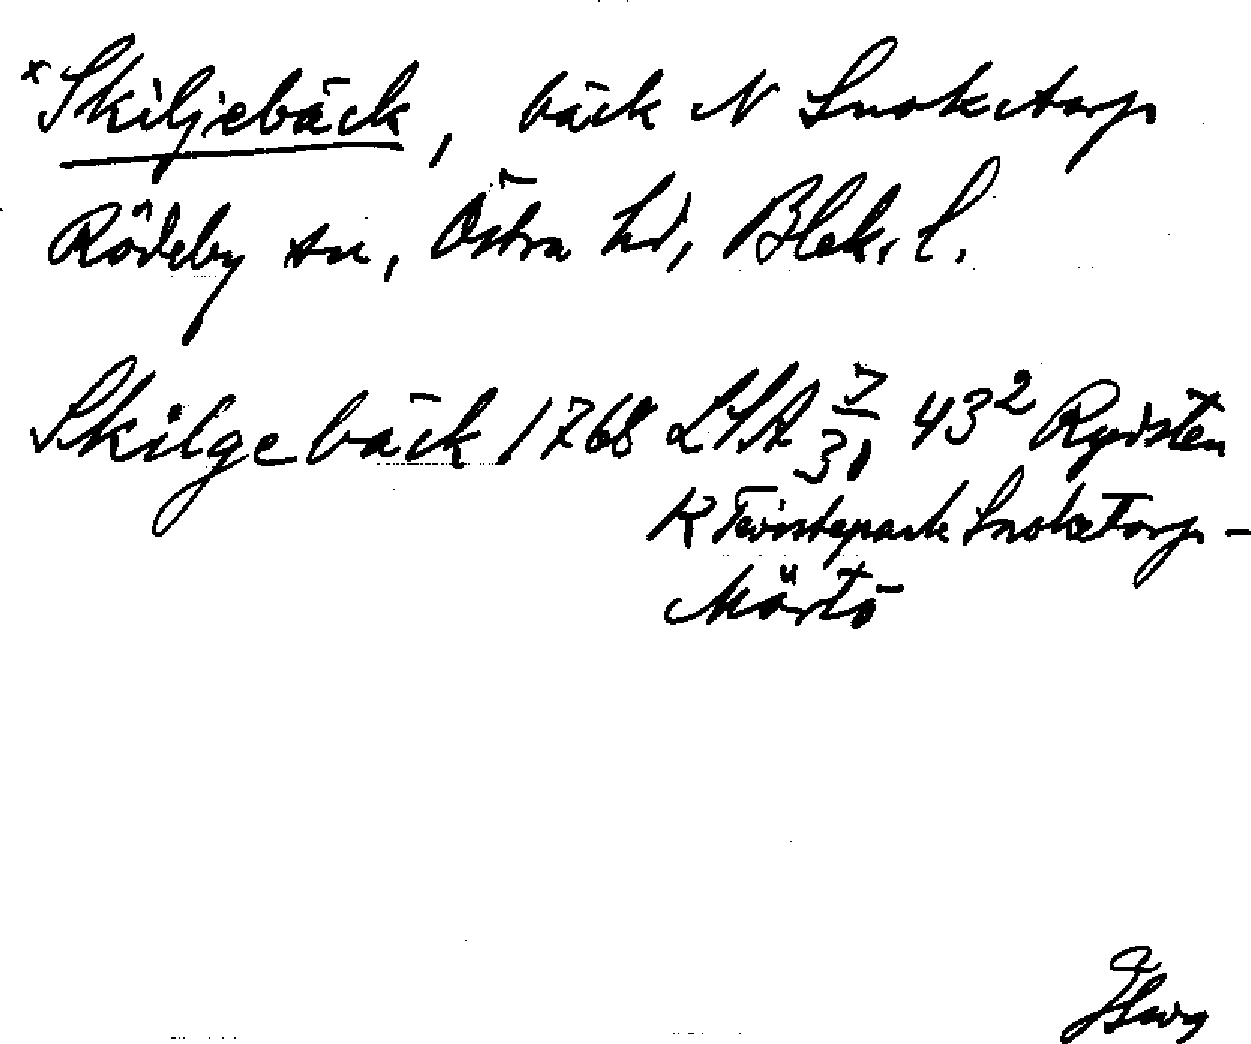 *Skiljebäck, bäck N Snokstorp
Rödeby sn, Östra hd, Blek. l.
Skilgebäck 1768 LSA 7/31 43² Rydsten
K Tvistepark Snokstorp-
Mörtö